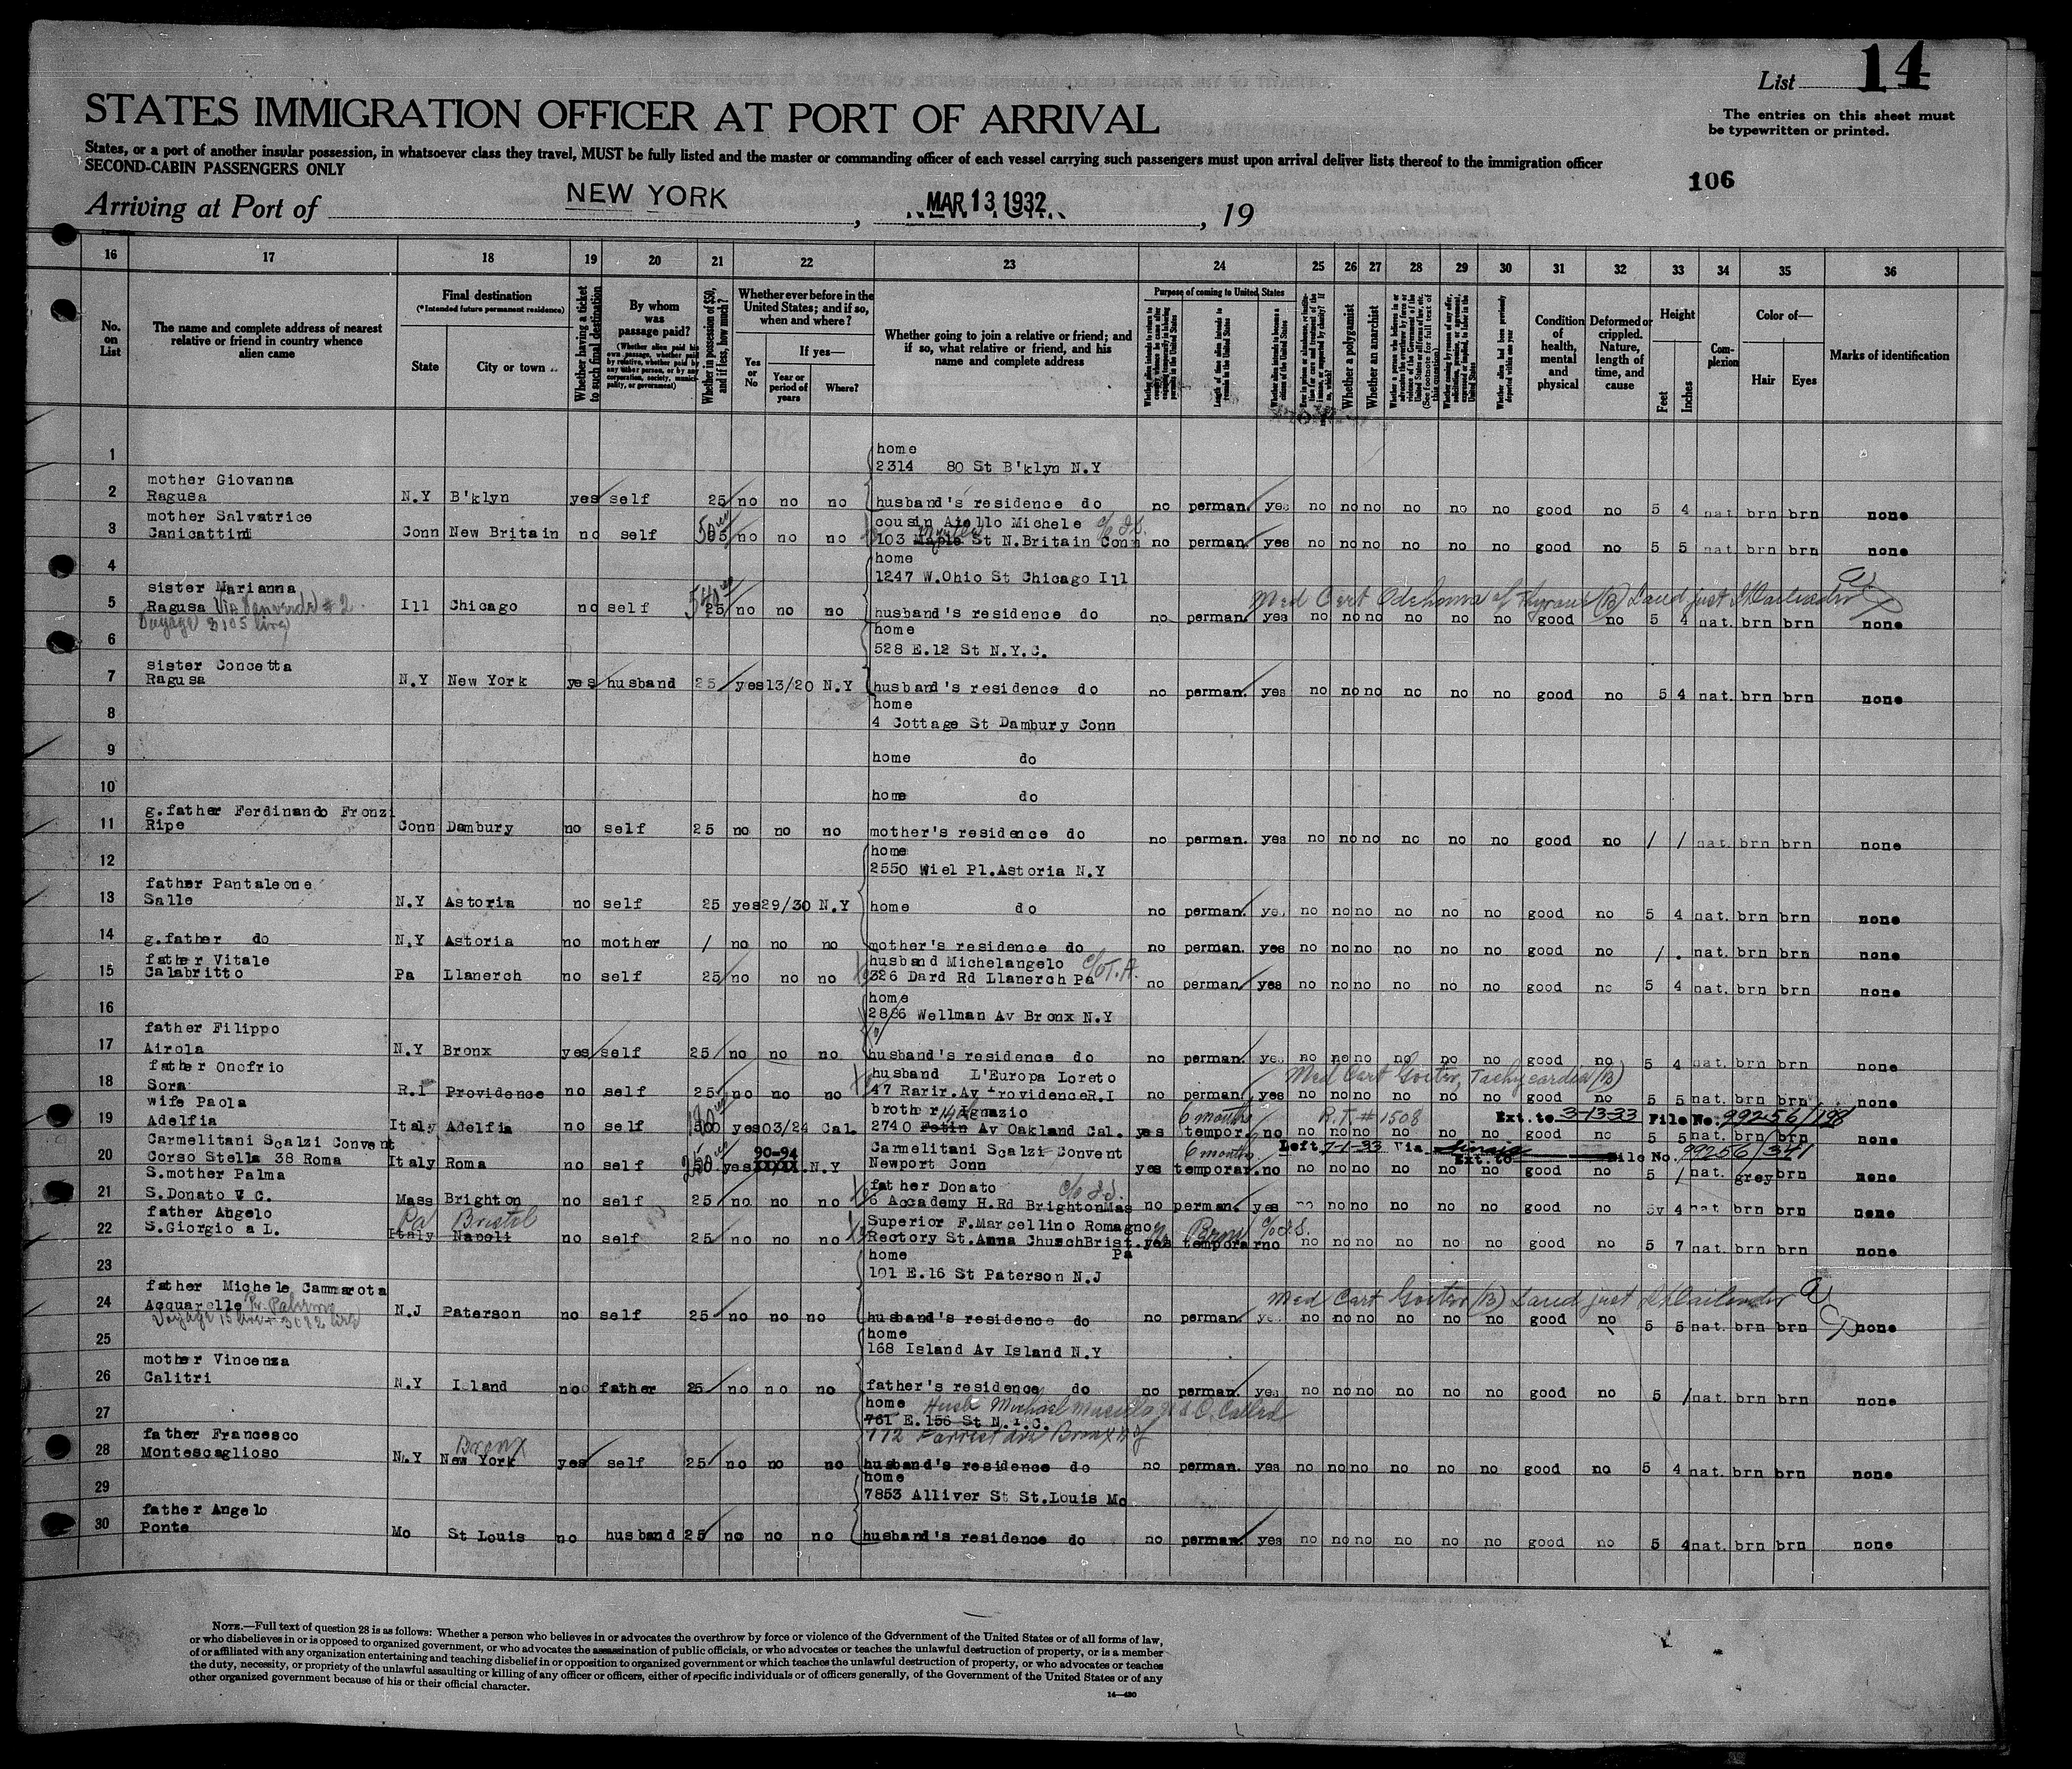 List 14
STATES IMMIGRATION OFFICER AT PORT OF ARRIVAL
The entries on this sheet must
be typewritten or printed.
States, or a port of another insular possession, in whatsoever class they travel, MUST be fully listed and the master or commanding officer of each vessel carrying such passengers must upon arrival deliver lists thereof to the immigration officer
SECOND-CABIN PASSENGERS ONLY
106
Arriving at Port of NEW YORK, MAR 13 1932, 19
16 17 18 19 20 21 22 23 24 25 26 27 28 29 30 31 32 33 34 35 36
No. on List
The name and complete address of nearest relative or friend in country whence alien came
Final destination
(*Intended future permanent residence)
State
City or town
Whether having a ticket to such final destination
By whom was passage paid?
(Whether alien paid his own passage, whether paid by relative, whether paid by any other person, or by any corporation, society, municipality, or government)
Whether in possession of $50, and if less, how much?
Whether ever before in the United States; and if so, when and where?
Yes or No
If yes—
Year or period of years
Where?
Whether going to join a relative or friend; and if so, what relative or friend, and his name and complete address
Purpose of coming to United States
Length of time alien intends to remain in the United States
Whether alien intends to become a citizen of the United States
Whether a polygamist
Whether an anarchist
Whether alien had been previously deported within one year
Condition of health, mental and physical
Deformed or crippled. Nature, length of time, and cause
Height
Feet
Inches
Complexion
Color of—
Hair
Eyes
Marks of identification
1 home
2314 80 St B'klyn N.Y
2 mother Giovanna
Ragusa N.Y B'klyn yes self 25 no no no husband's residence do no perman. yes no no no no no no good no 5 4 nat brn brn none
3 mother Salvatrice
Canicattini Conn New Britain no self no no no cousin Aiello Michele
103 Maple St N.Britain Conn no perman. yes no no no no no no good no 5 5 nat brn brn none
4 home
1247 W.Ohio St Chicago Ill
5 sister Marianna
Ragusa Ill Chicago no self 25 no no no husband's residence do no perman. yes no no no no no no good no 5 4 nat. brn brn none
Med Cert
6 home
528 E.12 St N.Y.C.
7 sister Concetta
Ragusa N.Y New York yes husband 25 yes 13/20 N.Y husband's residence do no perman. yes no no no no no no good no 5 4 nat. brn brn none
8 home
4 Cottage St Dambury Conn
9 home do
10 home do
11 g.father Ferdinando Fronzi
Ripe Conn Dambury no self 25 no no no mother's residence do no perman. yes no no no no no no good no / / nat. brn brn none
12 home
2550 Wiel Pl.Astoria N.Y
13 father Pantaleone
Salle N.Y Astoria no self 25 yes 29/30 N.Y home do no perman. yes no no no no no no good no 5 4 nat. brn brn none
14 g.father do N.Y Astoria no mother / no no no mother's residence do no perman. yes no no no no no no good no / . nat. brn brn none
15 father Vitale
Calabritto Pa Llanerch no self 25 no no no husband Michelangelo
326 Dard Rd Llanerch Pa no perman. yes no no no no no no good no 5 4 nat. brn brn none
16 home
Wellman Av Bronx N.Y
17 father Filippo
Airola N.Y Bronx yes self 25 no no no husband's residence do no perman. yes no no no no no no good no 5 4 nat. brn brn none
18 father Onofrio
Sora R.I Providence no self 25 no no no husband L'Europa Loreto
47 Rarir.Av Providence R.I no perman. yes no no no no no no good no 5 5 nat. brn brn none
Med Cert Goiter, Tachycardia (B)
19 wife Paola
Adelfia Italy Adelfia no self yes 03/24 Cal. brother Ignazio
2740 Av Oakland Cal. yes 6 months tempor. no no no no no no no good no 5 5 nat. brn brn none
R.T. # 1508 Ext. to 3-13-33 File No. 99256/198
20 Carmelitani Scalzi Convent
Corso Stella 38 Roma Italy Roma no self yes 90-94 N.Y Carmelitani Scalzi Convent
Newport Conn yes 6 months temporar. no no no no no no no good no 5 / nat. grey brn none
Left 7-1-33 Via Ext. to File No. 99256/341
21 S.mother Palma
S.Donato V C. Mass Brighton no self 25 no no no father Donato
6 Accademy H.Rd Brighton Mas no perman. yes no no no no no no good no 5 4 nat. brn brn none
22 father Angelo
S.Giorgio a L. Italy Napoli Pa Bristol no self 25 no no no Superior F.Marcellino Romagno
Rectory St.Anna Church Brist. Pa yes temporar no no no no no no no good no 5 7 nat. brn brn none
23 home
101 E.16 St Paterson N.J
24 father Michele Cammarota
Acquarelle N.J Paterson no self 25 no no no husband's residence do no perman. yes no no no no no no good no 5 5 nat. brn brn none
Med Cert Goiter (B)
25 home
168 Island Av Island N.Y
26 mother Vincenza
Calitri N.Y Island no father 25 no no no father's residence do no perman. yes no no no no no no good no 5 / nat. brn brn none
27 home Husb Michael
761 E.156 St N.Y.C.
772 Forrest Ave Bronx NY
28 father Francesco
Montescaglioso N.Y New York Bronx yes self 25 no no no husband's residence do no perman. yes no no no no no no good no 5 4 nat. brn brn none
29 home
7853 Alliver St St.Louis Mo
30 father Angelo
Ponte Mo St Louis no husband 25 no no no husband's residence do no perman. yes no no no no no no good no 5 4 nat. brn brn none
NOTE.—Full text of question 28 is as follows: Whether a person who believes in or advocates the overthrow by force or violence of the Government of the United States or of all forms of law,
or who disbelieves in or is opposed to organized government, or who advocates the assassination of public officials, or who advocates or teaches the unlawful destruction of property, or is a member
of or affiliated with any organization entertaining and teaching disbelief in or opposition to organized government or which teaches the unlawful destruction of property, or who advocates or teaches
the duty, necessity, or propriety of the unlawful assaulting or killing of any officer or officers, either of specific individuals or of officers generally, of the Government of the United States or of any
other organized government because of his or their official character.
14—430